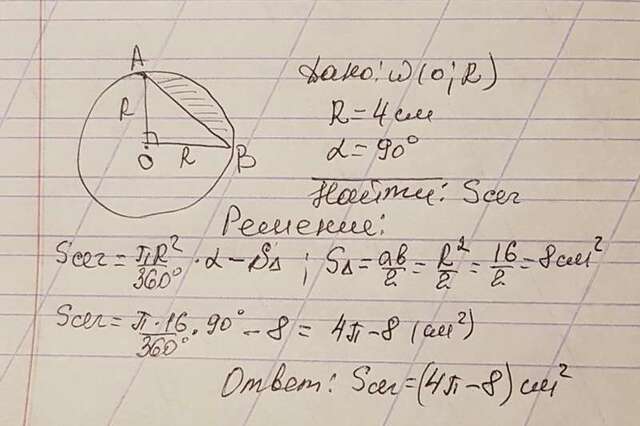 A
R
O R B
Дано: ω(O; R)
R = 4 см
α = 90°
Найти: Sсег
Решение:
Sсег = πR²/360° · α − S∆ ; S∆ = ab/2 = R²/2 = 16/2 = 8 см²
Sсег = π·16/360° · 90° − 8 = 4π − 8 (см²)
Ответ: Sсег = (4π − 8) см²